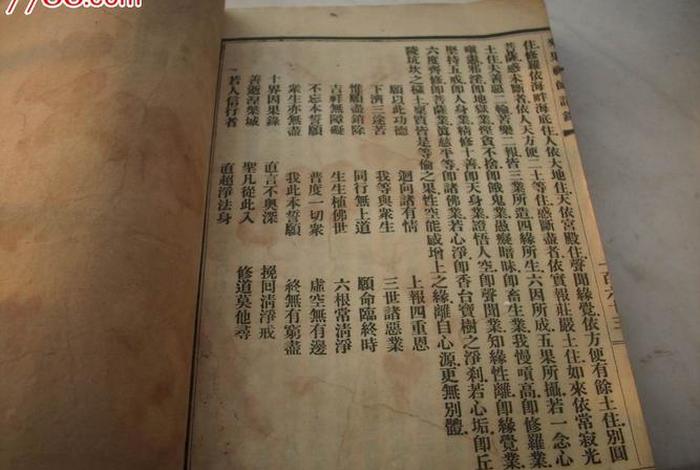 禪師語錄
一百六十三
住.修羅依海畔海底住.人依大地住.天依宮殿住.聲聞緣覺.依方便有餘土住.別圓
菩薩.惑未斷者依人天方便二土等住.惑斷盡者依實報莊嚴土住.如來依常寂光
土住.夫善惡二輪苦樂二報皆三業所造.四緣所生.六因所成.五果所攝.若一念心
嗔恚邪淫卽地獄業.慳貪不捨.卽餓鬼業.愚癡暗昧卽畜生業.我慢嗔高卽修羅業.
堅持五戒卽人身業.精修十善.卽天身業.證悟人空.卽聲聞業.知緣性離卽緣覺業.
六度齊修卽菩薩業.眞慈平等.卽諸佛業.若心淨卽香台寶樹之淨剎.若心垢卽丘
陵坑坎之穢土.稟質皆是等倫之果.性空能感增上之緣.離自心源.更無別體.
願以此功德 迴向諸有情 上報四重恩
下濟三途苦 我等與衆生 三世諸惡業
惟願盡銷除 同行無上道 願命臨終時
吉祥無障礙 生生植佛世 六根常清淨
不忘本誓願 普度一切衆 虛空無有邊
衆生亦無盡 我此本誓願 終無有窮盡
十界因果錄 直言不奧深 挽回清淨戒
善遊涅槃城 聖凡從此入 修道莫他尋
若人信行者 直超淨法身